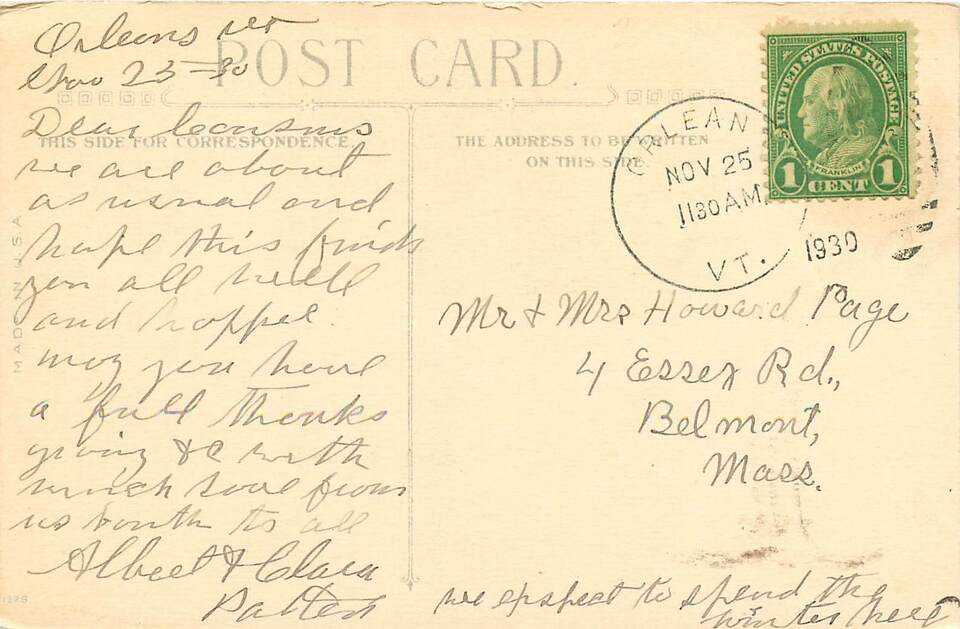 Orleans Vt
Nov 23 - 30
POST CARD.
Dear Cousins
THIS SIDE FOR CORRESPONDENCE
we are about
as usual and
hope this finds
you all well
and happee.
may you have
a full thanks
giving &c with
much love from
us both to all
Albert & Clara
Patten
MADE IN U.S.A
1328
THE ADDRESS TO BE WRITTEN
ON THIS SIDE
ORLEAN
NOV 25
1130 AM
1930
VT.
UNITED STATES POSTAGE
FRANKLIN
1 CENT 1
Mr & Mrs Howard Page
4 Essex Rd.,
Belmont,
Mass.
we expsect to spend the
winter here